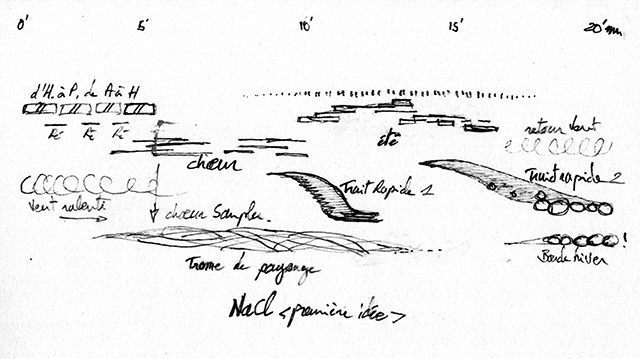 0' 5' 10' 15' 20' mn
d'H. à P. de A à H
Ré Ré Ré
chœur
été
retour vent
vent ralenti
Trait Rapide 1
Trait rapide 2
chœur Sampler.
Trame de paysage
Boucle hiver
!
NaCl <première idée>